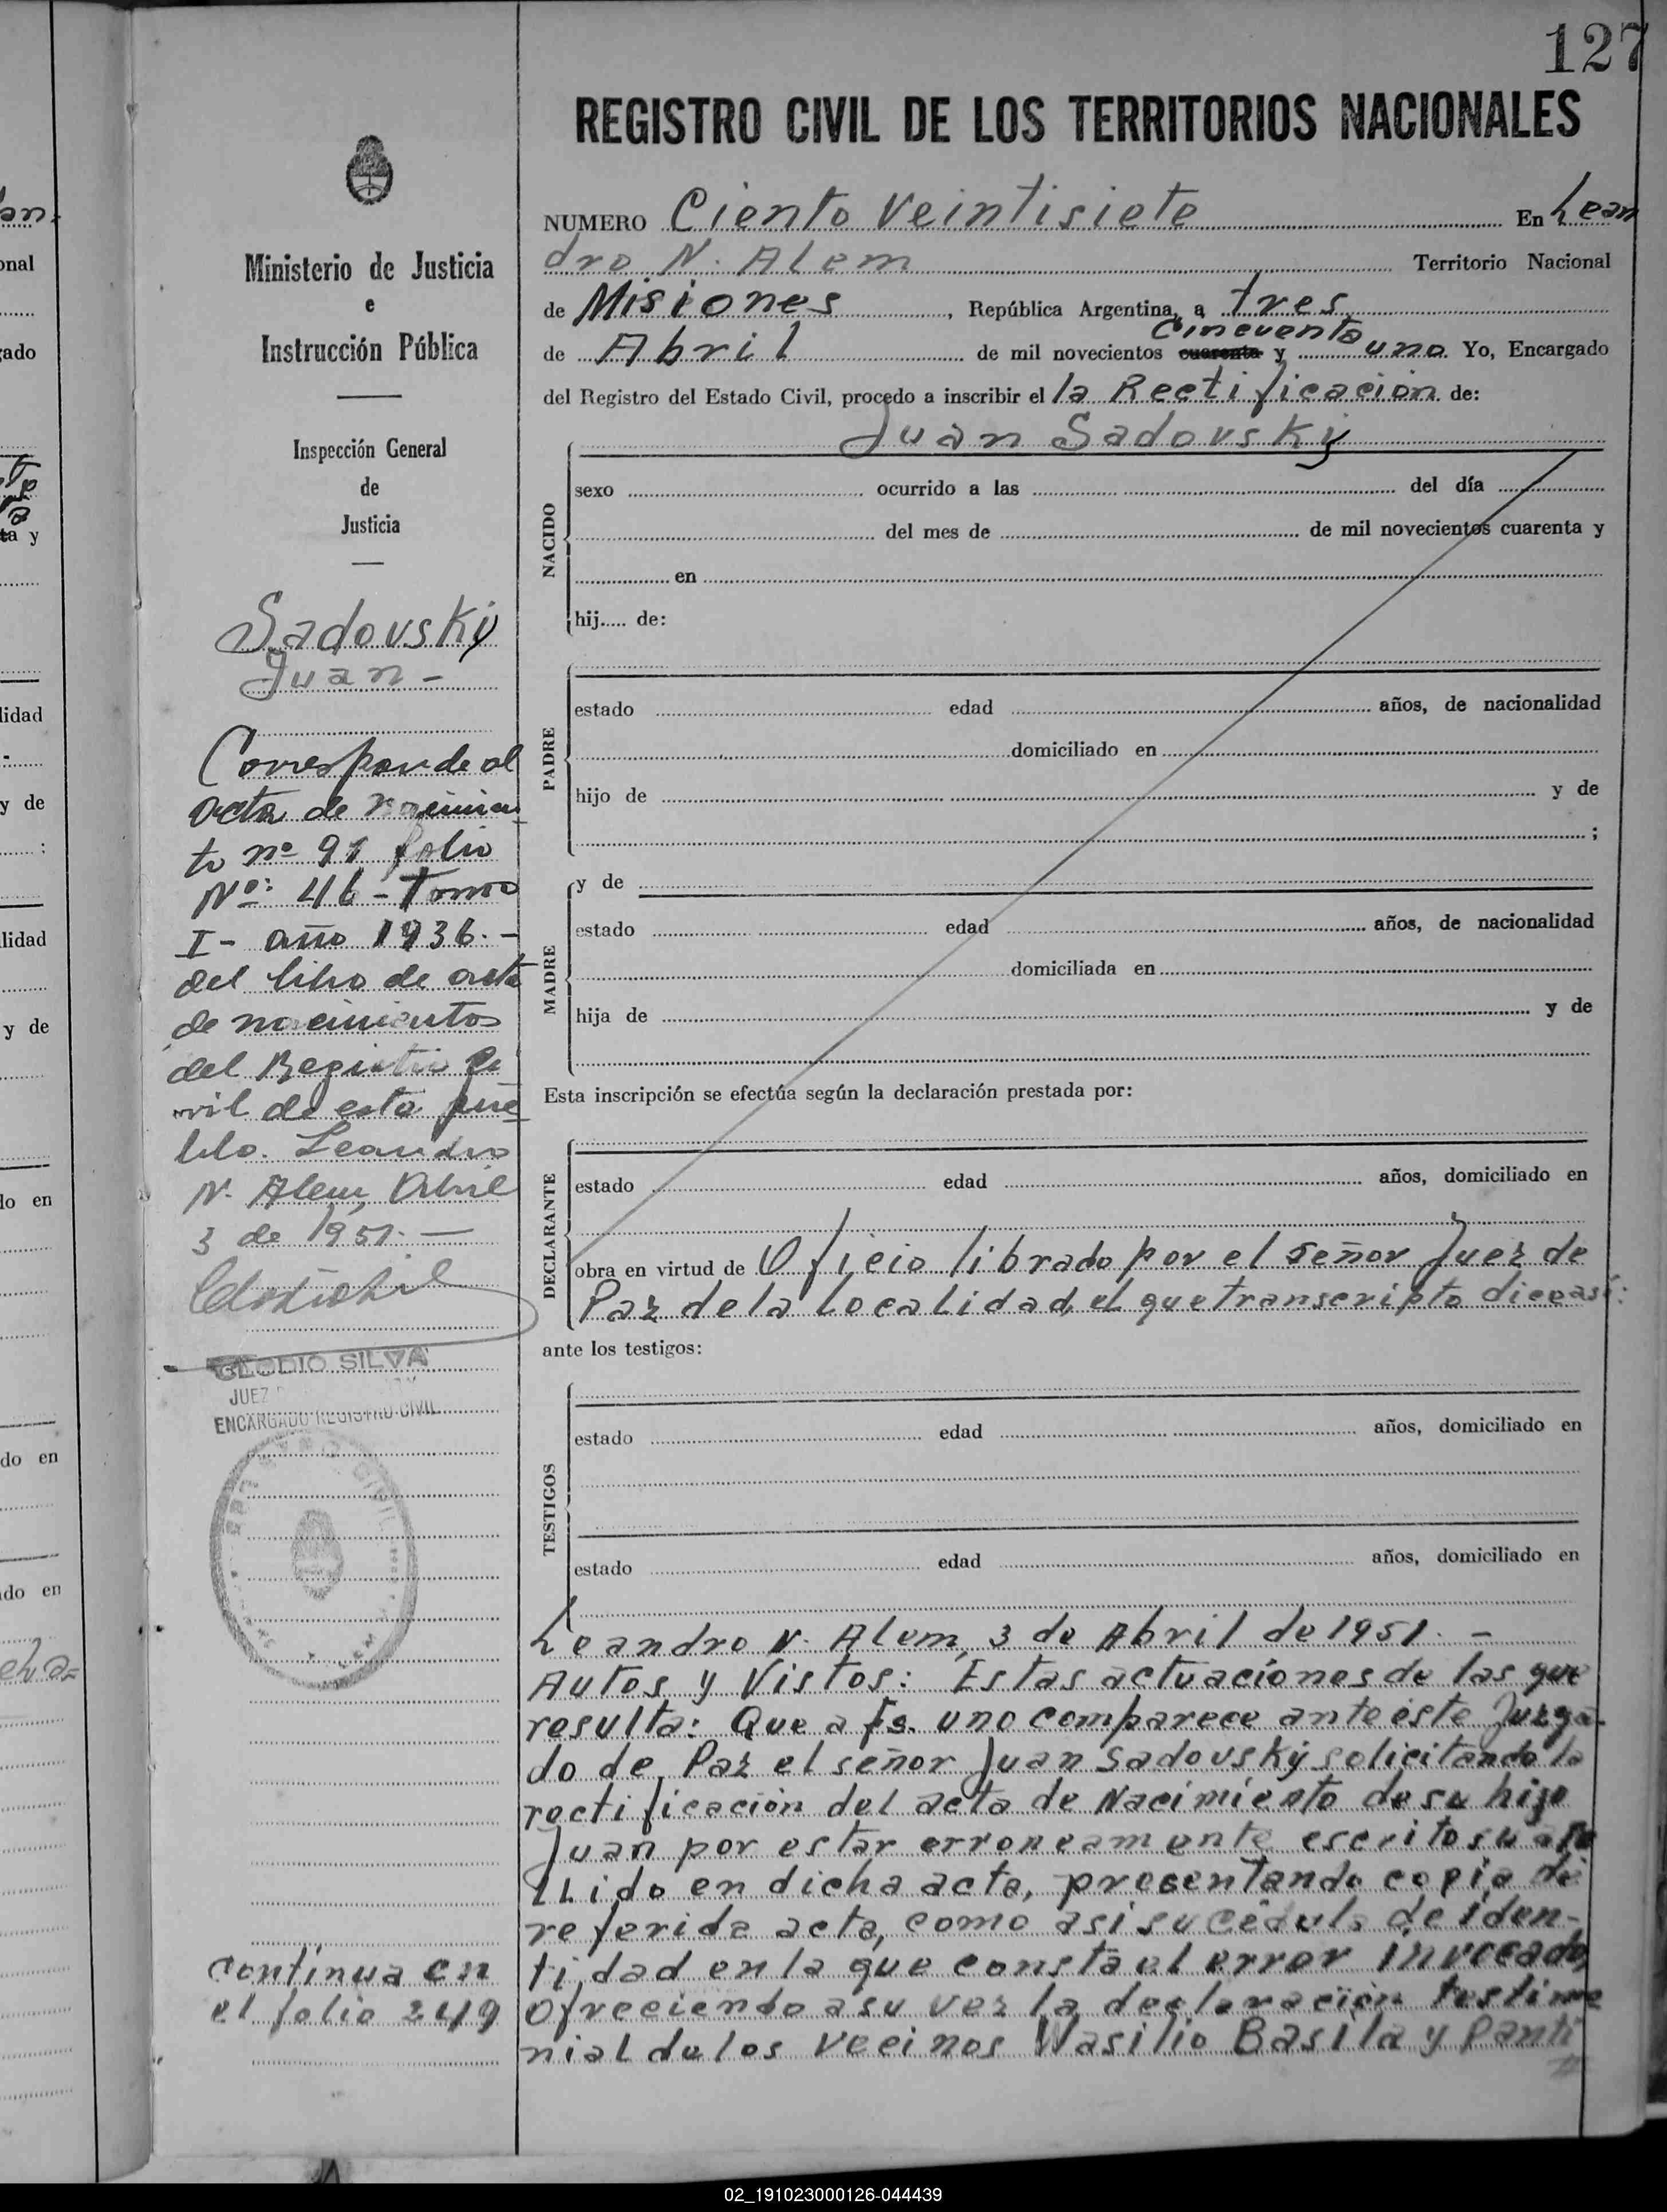 127
REGISTRO CIVIL DE LOS TERRITORIOS NACIONALES
Ministerio de Justicia
e
Instrucción Pública
Inspección General
de
Justicia
Sadovsky
Juan -
Corresponde al
acta de nacimien
to nº 91 folio
Nº: 46 - Tomo
I - año 1936. -
del libro de acta
de nacimientos
del Registro Ci
vil de esta pue
blo. Leandro
N. Alem, Abril
3 de 1951. —
CLODIO SILVA
JUEZ
ENCARGADO REGISTRO CIVIL
continua en
el folio 249
NUMERO Ciento Veintisiete En Lean
dro N. Alem Territorio Nacional
de Misiones, República Argentina, a tres
cincuenta
de Abril de mil novecientos cuarenta y uno. Yo, Encargado
del Registro del Estado Civil, procedo a inscribir el la Rectificación de:
Juan Sadovsky
NACIDO
sexo ocurrido a las del día
del mes de de mil novecientos cuarenta y
en
hij..... de:
PADRE
estado edad años, de nacionalidad
domiciliado en
hijo de y de
;
MADRE
y de
estado edad años, de nacionalidad
domiciliada en
hija de y de
Esta inscripción se efectúa según la declaración prestada por:
DECLARANTE
estado edad años, domiciliado en
obra en virtud de Oficio librado por el señor Juez de
Paz de la Localidad, el que transcripto dice así:
ante los testigos:
TESTIGOS
estado edad años, domiciliado en
estado edad años, domiciliado en
Leandro N. Alem, 3 de Abril de 1951. -
Autos y Vistos: Estas actuaciones de las que
resulta: Que a fs. uno comparece ante éste Juzga-
do de Paz el señor Juan Sadovsky solicitando la
rectificación del acta de Nacimiento de su hijo
Juan por estar erroneamente escrito su ape
llido en dicha acta, presentando copia de
referida acta, como asi su cédula de iden-
tidad en la que consta el error invocado,
ofreciendo a su vez la declaración testimo
nial de los vecinos Wasilio Basila y Panti
02_191023000126-044439